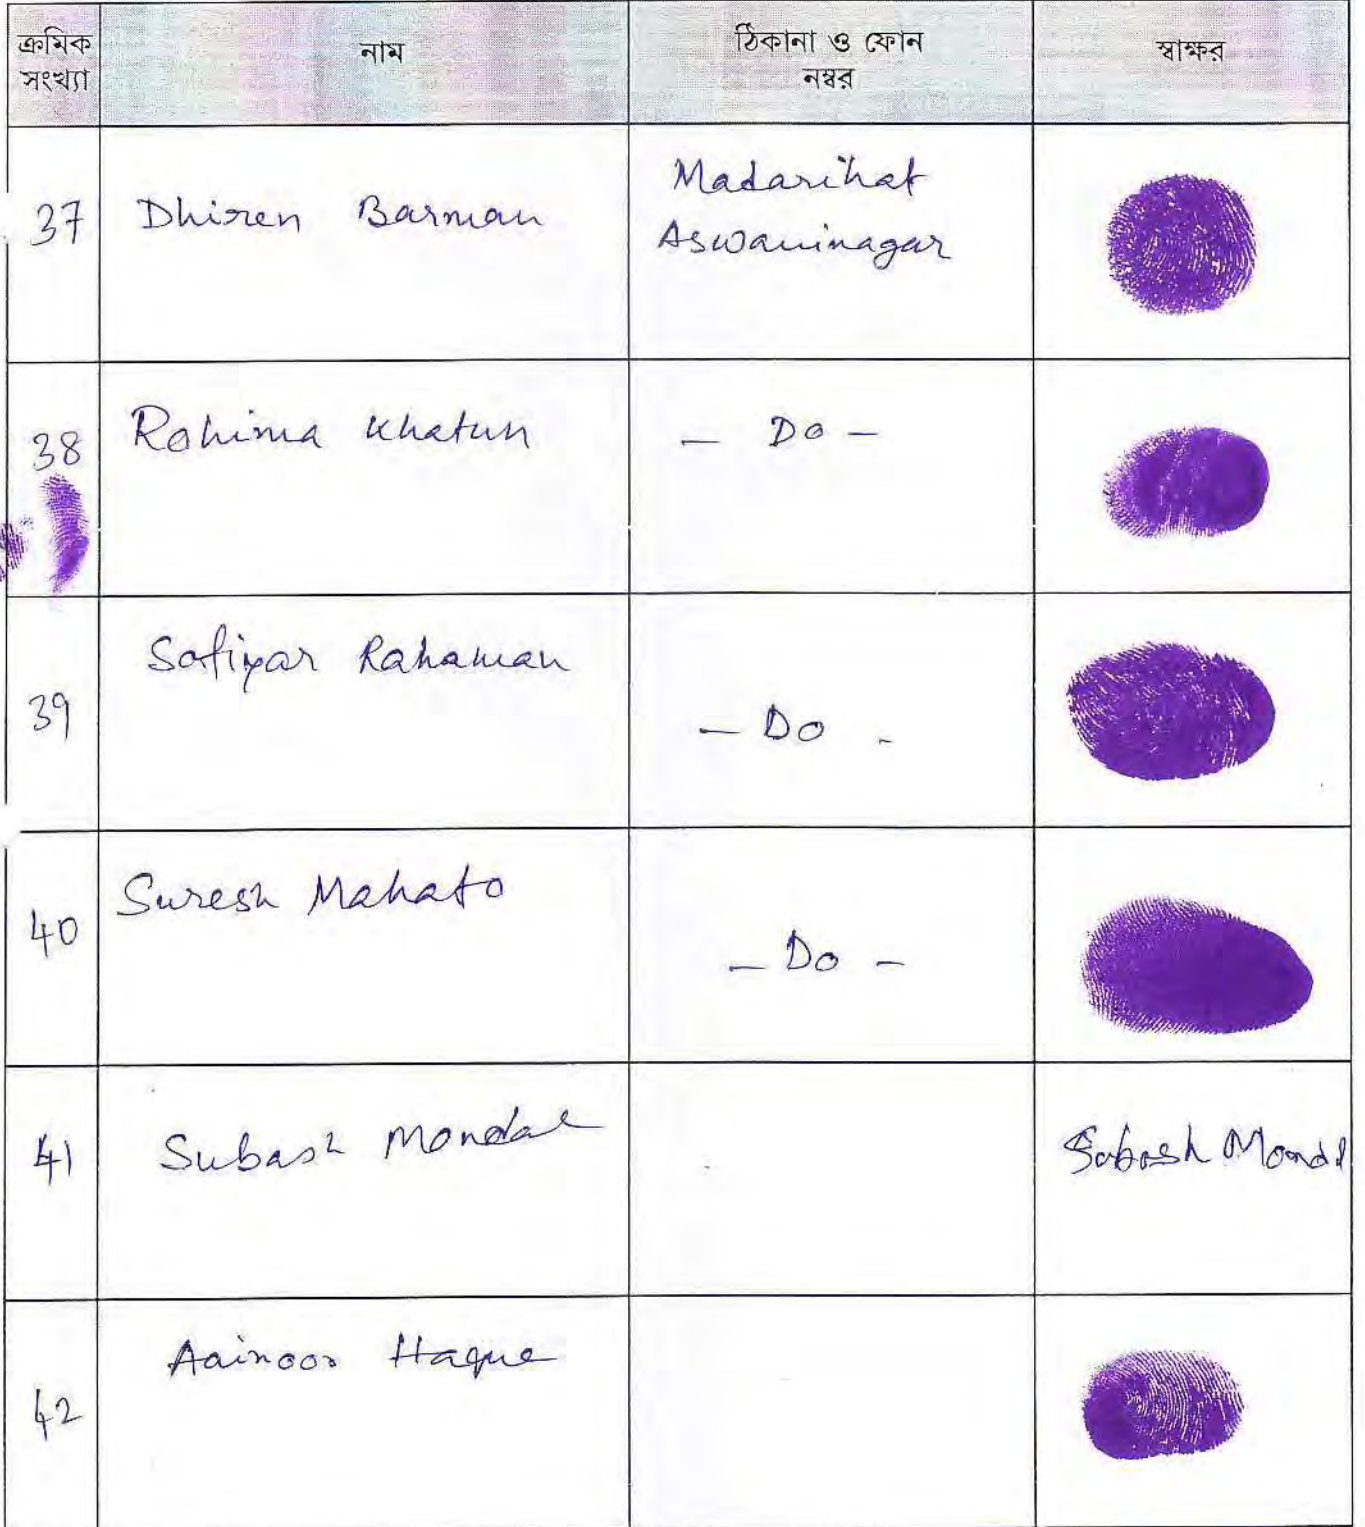 ক্রমিক সংখ্যা নাম ঠিকানা ও ফোন নম্বর স্বাক্ষর
37 Dhiren Barman Madarihat
Aswaninagar
38 Rahima Khatun — Do —
39 Safiyar Rahaman — Do -
40 Suresh Mahato — Do —
41 Subash Mondal Sabash Mondl
42 Aainoor Haque